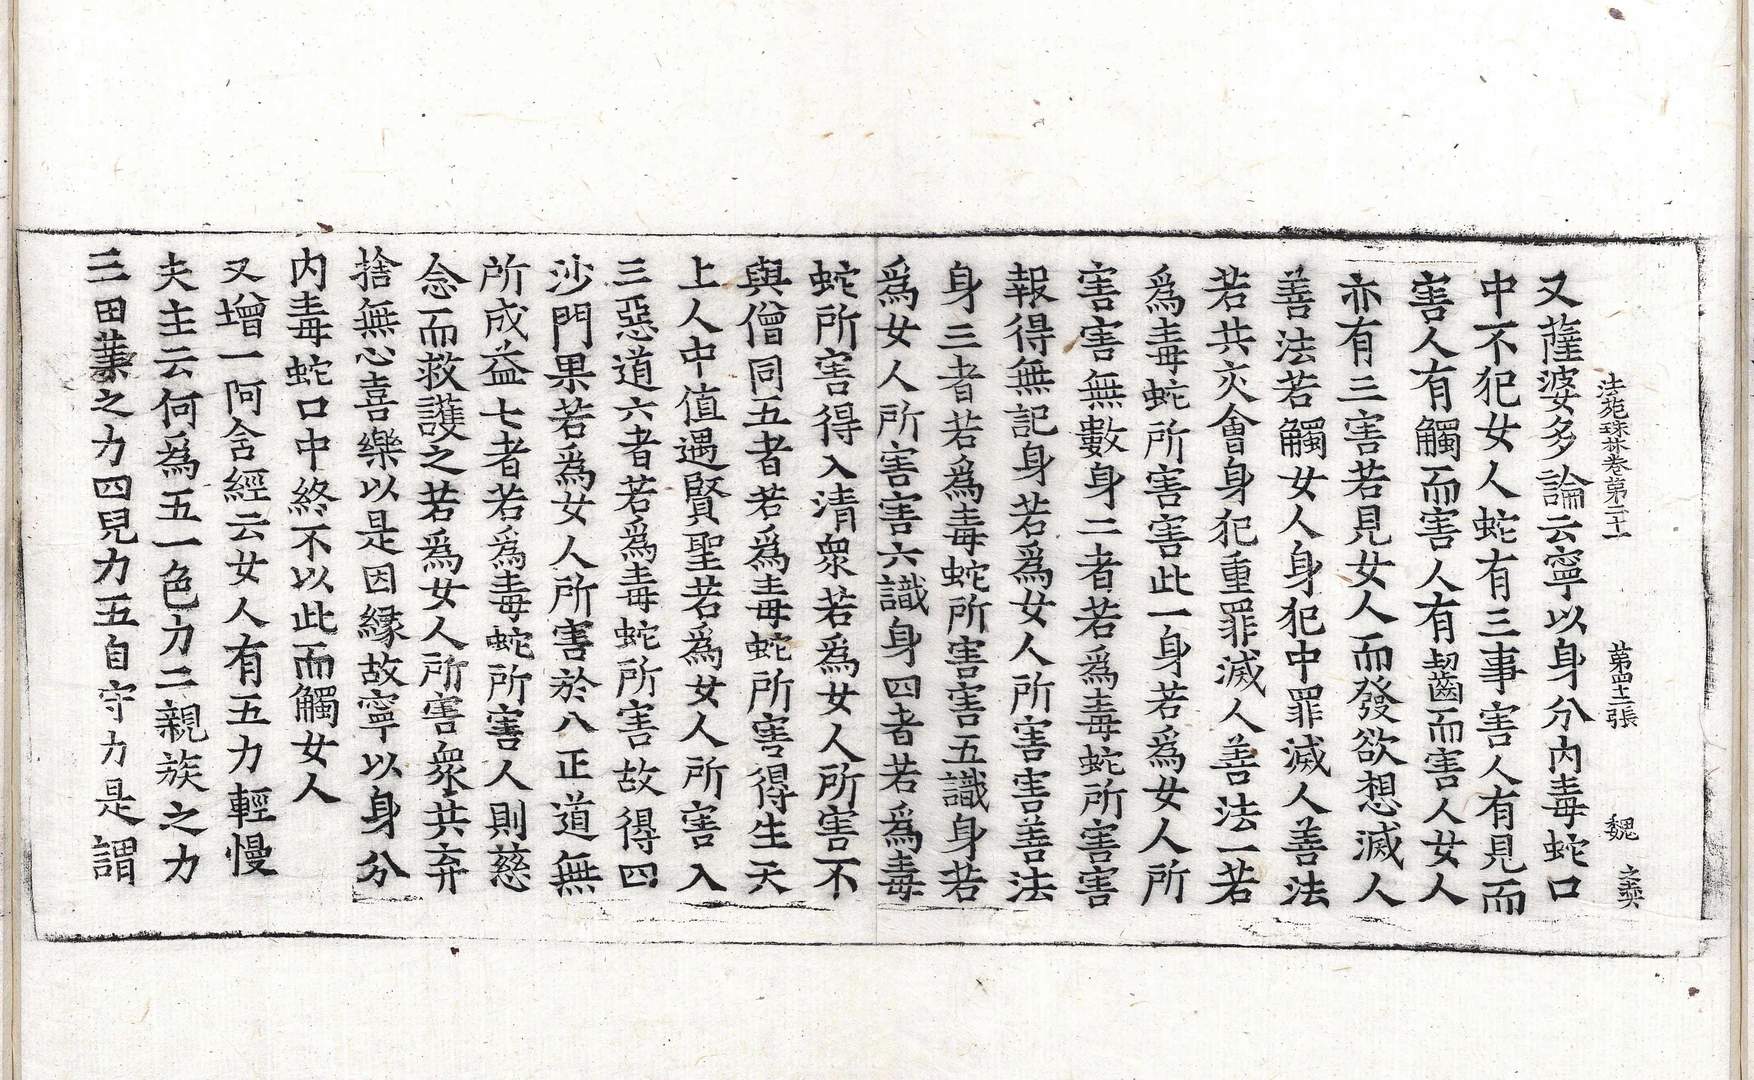 法苑珠林卷第二十一　第四十二張　魏　之奕
又薩婆多論云寧以身分內毒蛇口
中不犯女人蛇有三事害人有見而
害人有觸而害人有齧而害人女人
亦有三害若見女人而發欲想滅人
善法若觸女人身犯中罪滅人善法
若共交會身犯重罪滅人善法一若
爲毒蛇所害害此一身若爲女人所
害害無數身二者若爲毒蛇所害害
報得無記身若爲女人所害害善法
身三者若爲毒蛇所害害五識身若
爲女人所害害六識身四者若爲毒
蛇所害得入清衆若爲女人所害不
與僧同五者若爲毒蛇所害得生天
上人中值遇賢聖若爲女人所害入
三惡道六者若爲毒蛇所害故得四
沙門果若爲女人所害於八正道無
所成益七者若爲毒蛇所害人則慈
念而救護之若爲女人所害衆共弃
捨無心喜樂以是因緣故寧以身分
內毒蛇口中終不以此而觸女人
又增一阿含經云女人有五力輕慢
夫主云何爲五一色力二親族之力
三田業之力四兒力五自守力是謂